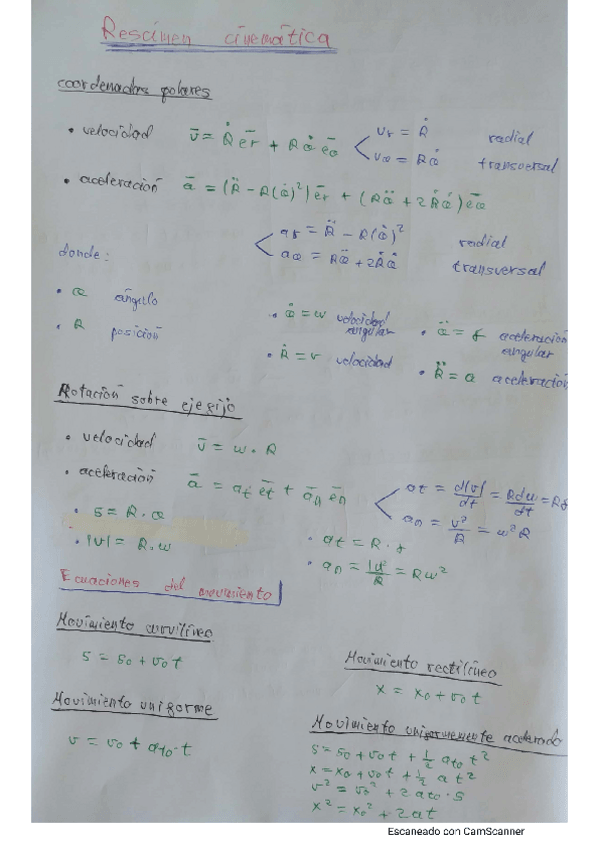 Resumen cinemática
coordenadas polares
• velocidad v̄ = Ṙ ēr + R α̇ ēα
vr = Ṙ radial
vα = Rα̇ transversal
• aceleración ā = (R̈ - R(α̇)²) ēr + (Rα̈ + 2Ṙα̇) ēα
ar = R̈ - R(α̇)² radial
aα = Rα̈ + 2Ṙα̇ transversal
donde:
• α ángulo
• R posición
• α̇ = w velocidad angular
• Ṙ = v velocidad
• α̈ = γ aceleración angular
• R̈ = a aceleración
Rotación sobre eje fijo
• velocidad v̄ = w · R
• aceleración ā = at ēt + ān ēn
at = d|v|/dt = Rdw/dt = Rγ
an = v²/R = w²R
• s = R · α
• |v| = R · w
• at = R · γ
• an = |v|²/R = Rw²
Ecuaciones del movimiento
Movimiento curvilíneo
s = s0 + v0 t
Movimiento rectilíneo
x = x0 + v0 t
Movimiento uniforme
v = v0 + at0 · t
Movimiento uniformemente acelerado
s = s0 + v0 t + ½ at0 t²
x = x0 + v0 t + ½ a t²
v² = v0² + 2 at0 · s
x² = x0² + 2at
Escaneado con CamScanner